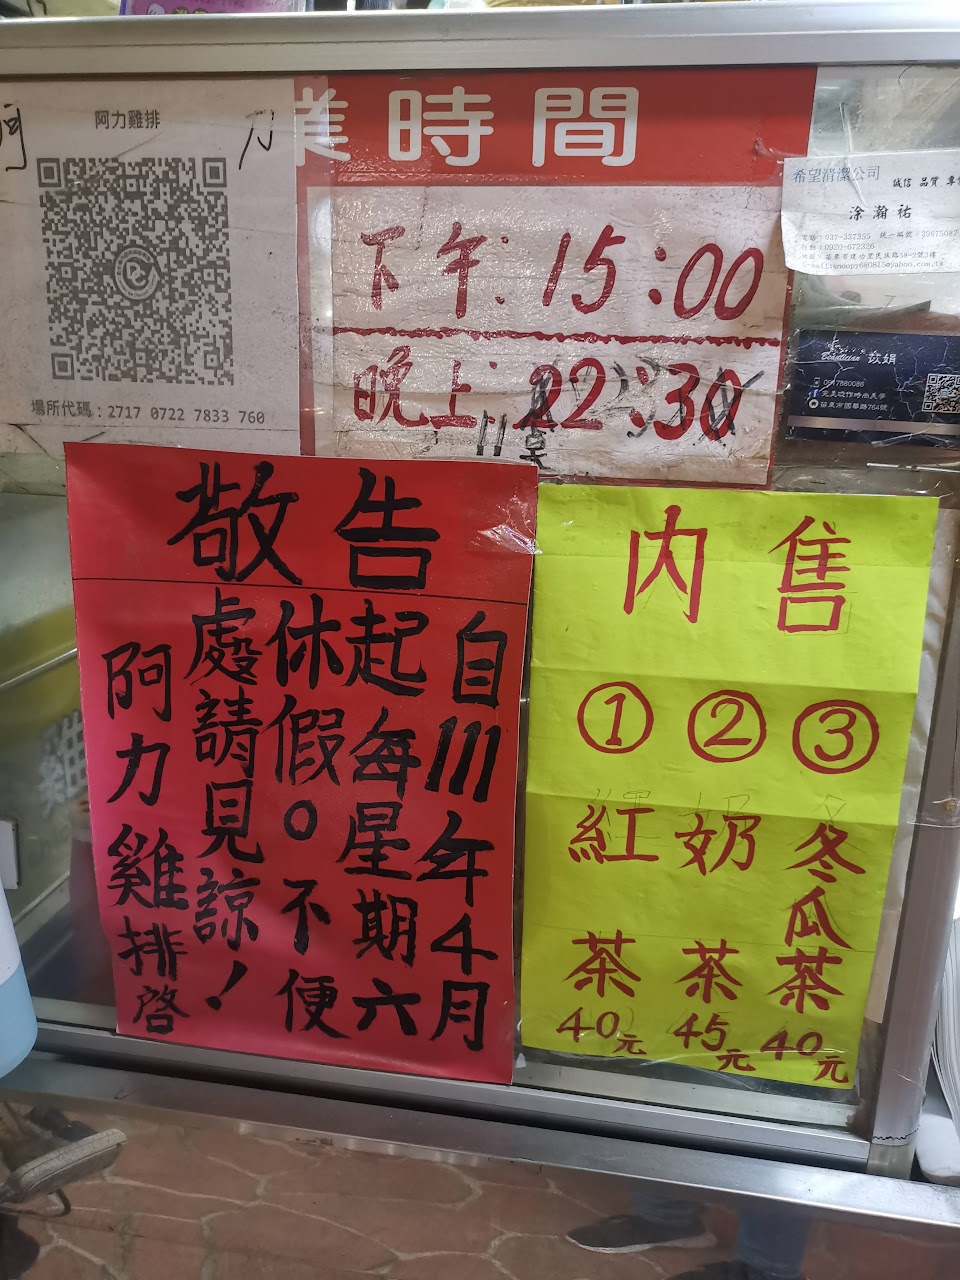 阿力雞排
場所代碼：2717 0722 7833 760
業時間
下午：15：00
晚上：22：30
希望清潔公司
誠信 品質
涂瀚祐
電話：037-337355 統一編號：39675087
0920-672326
苡娟
0917880086
敬告
自111年4月
起每星期六
休假。不便
處請見諒！
阿力雞排啓
內售
①紅茶40元
②奶茶45元
③冬瓜茶40元